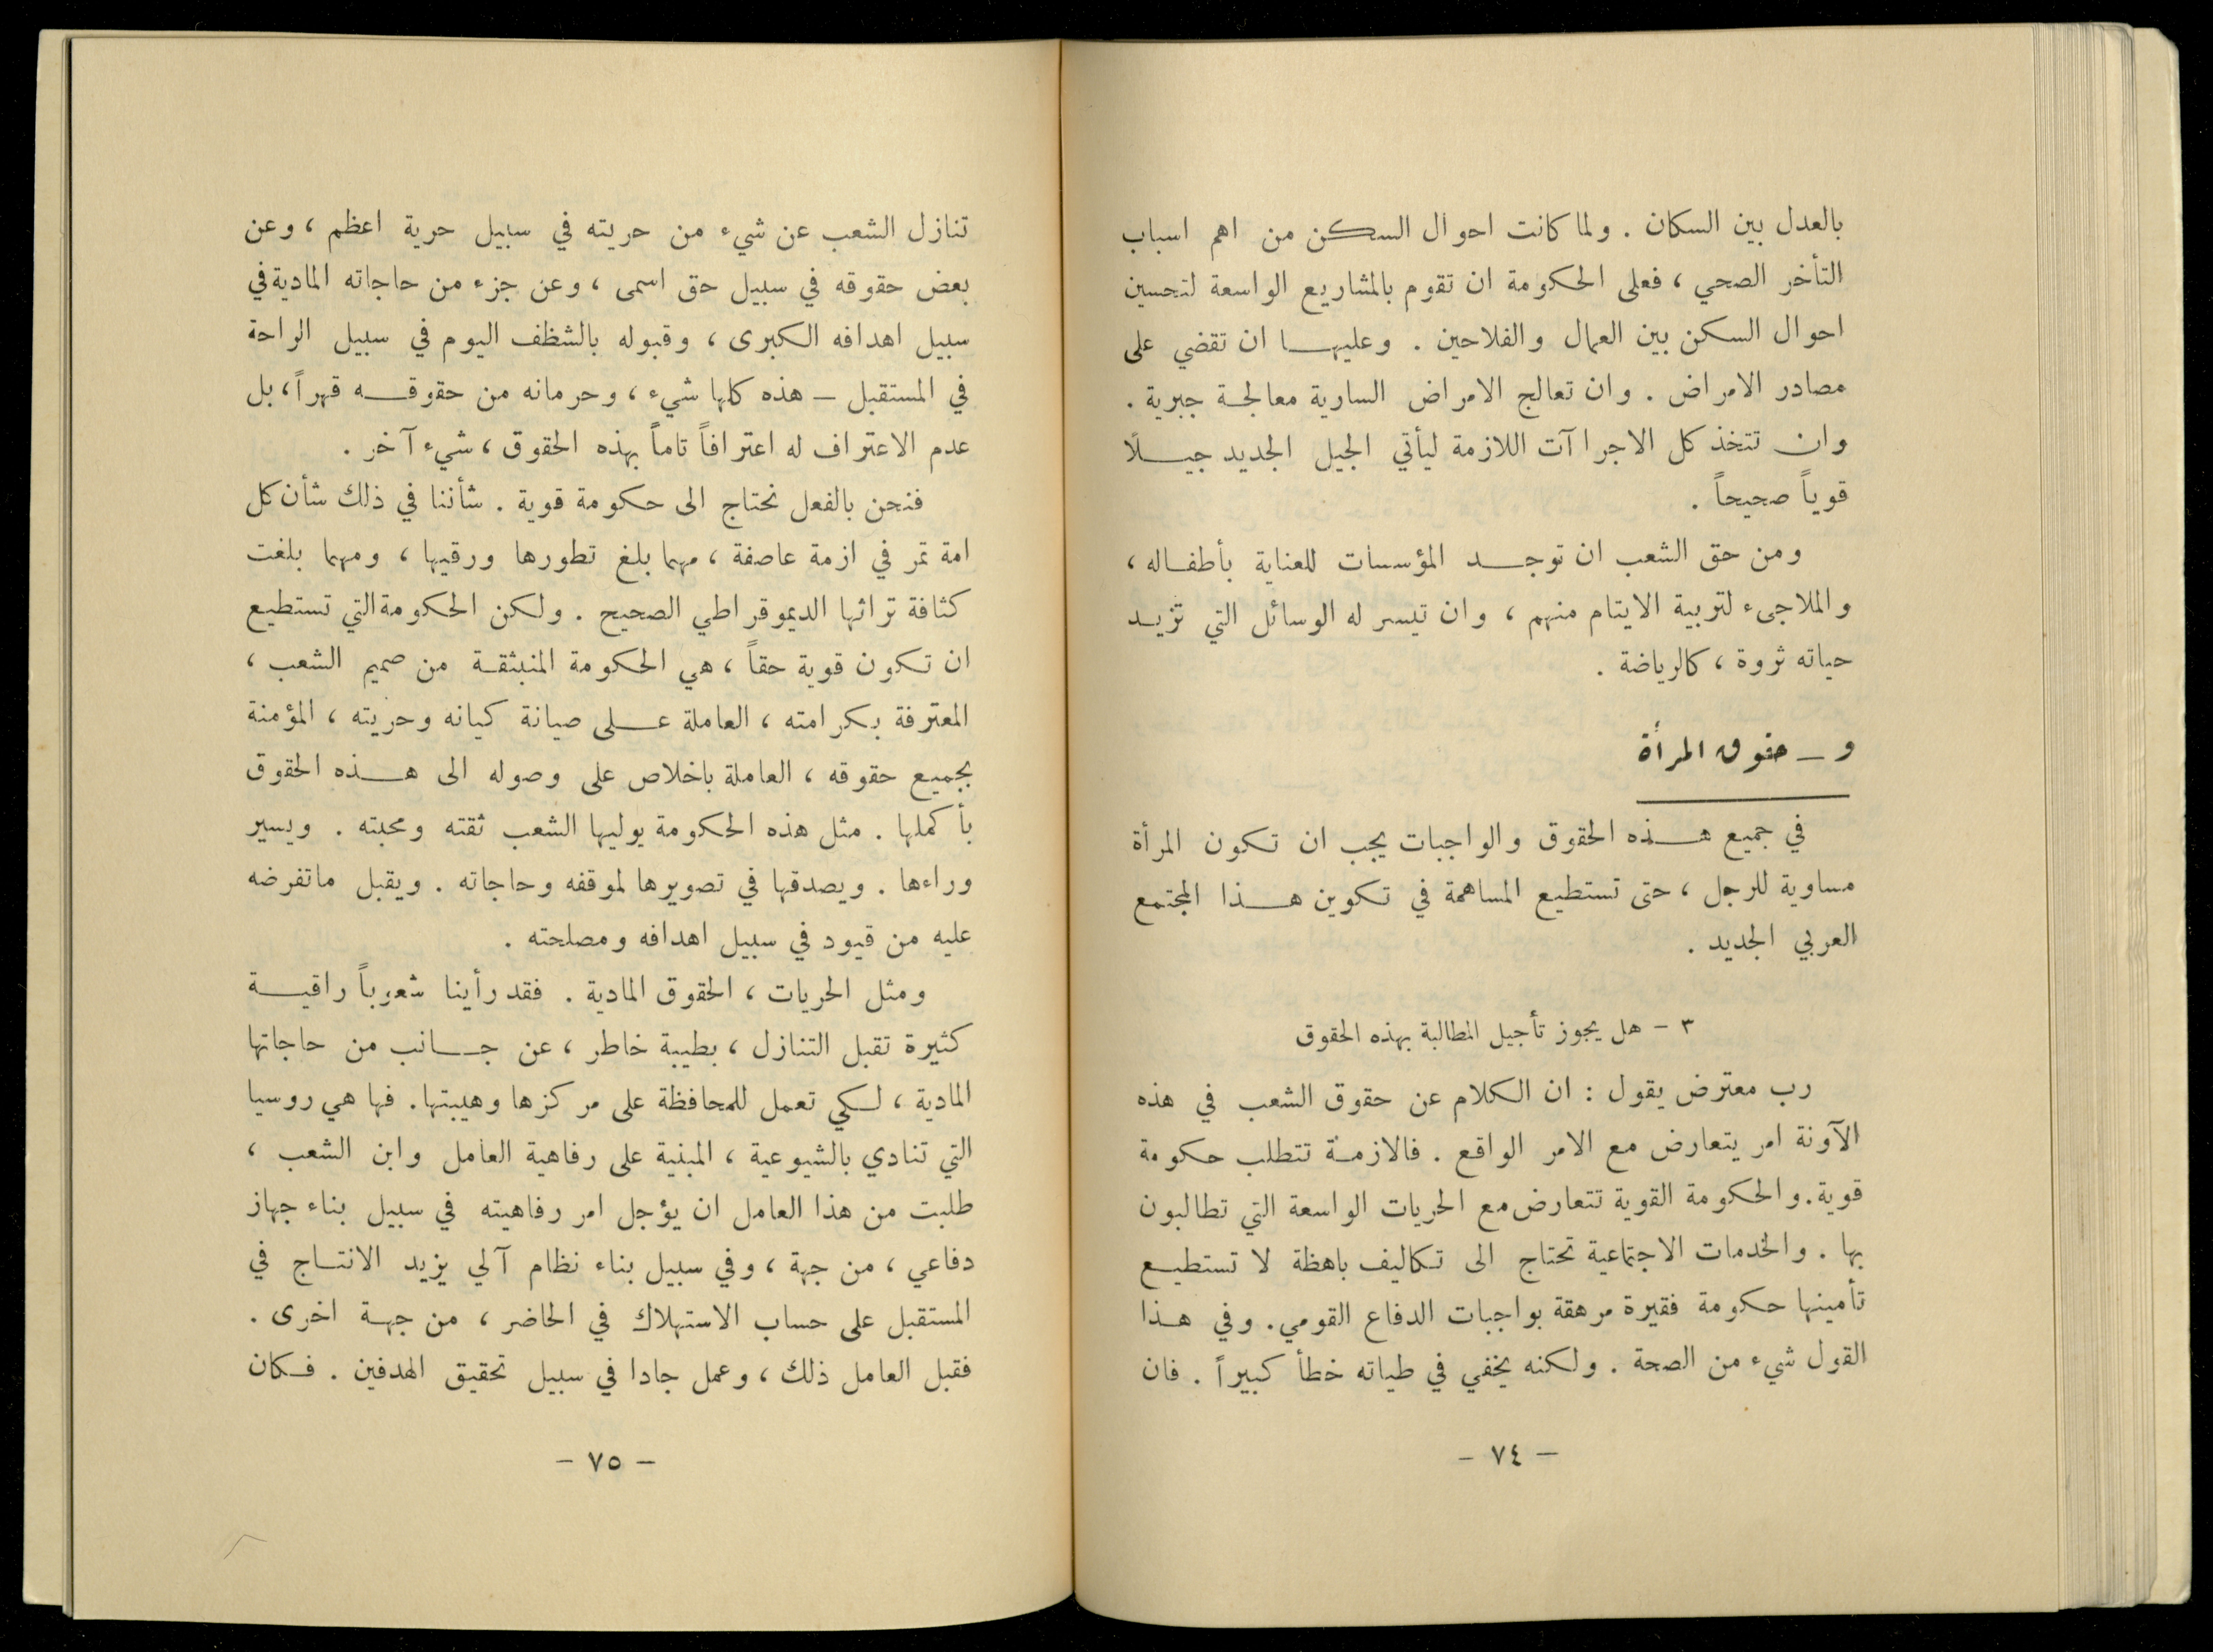 بالعدل بين السكان . ولما كانت احوال السكن من اهم اسباب
التأخر الصحي ، فعلى الحكومة ان تقوم بالمشاريع الواسعة لتحسين
احوال السكن بين العمال والفلاحين . وعليها ان تقضي على
مصادر الامراض . وان تعالج الامراض السارية معالجة جبرية .
وان تتخذ كل الاجراآت اللازمة ليأتي الجيل الجديد جيلًا
قوياً صحيحاً .
ومن حق الشعب ان توجد المؤسسات للعناية بأطفاله ،
والملاجىء لتربية الايتام منهم ، وان تيسر له الوسائل التي تزيد
حياته ثروة ، كالرياضة .
و - حقوق المرأة
في جميع هذه الحقوق والواجبات يجب ان تكون المرأة
مساوية للرجل ، حتى تستطيع المساهمة في تكوين هذا المجتمع
العربي الجديد .
٣ - هل يجوز تأجيل المطالبة بهذه الحقوق
رب معترض يقول : ان الكلام عن حقوق الشعب في هذه
الآونة امر يتعارض مع الامر الواقع . فالازمة تتطلب حكومة
قوية . والحكومة القوية تتعارض مع الحريات الواسعة التي تطالبون
بها . والخدمات الاجتماعية تحتاج الى تكاليف باهظة لا تستطيع
تأمينها حكومة فقيرة مرهقة بواجبات الدفاع القومي . وفي هذا
القول شيء من الصحة . ولكنه يخفي في طياته خطأ كبيراً . فان
- ٧٤ -
تنازل الشعب عن شيء من حريته في سبيل حرية اعظم ، وعن
بعض حقوقه في سبيل حق اسمى ، وعن جزء من حاجاته المادية في
سبيل اهدافه الكبرى ، وقبوله بالشظف اليوم في سبيل الراحة
في المستقبل - هذه كلها شيء ، وحرمانه من حقوقه قهراً ، بل
عدم الاعتراف له اعترافاً تاماً بهذه الحقوق ، شيء آخر .
فنحن بالفعل نحتاج الى حكومة قوية . شأننا في ذلك شأن كل
امة تمر في ازمة عاصفة ، مهما بلغ تطورها ورقيها ، ومهما بلغت
كثافة تراثها الديموقراطي الصحيح . ولكن الحكومة التي تستطيع
ان تكون قوية حقاً ، هي الحكومة المنبثقة من صميم الشعب ،
المعترفة بكرامته ، العاملة على صيانة كيانه وحريته ، المؤمنة
بجميع حقوقه ، العاملة باخلاص على وصوله الى هذه الحقوق
بأكملها . مثل هذه الحكومة يوليها الشعب ثقته ومحبته . ويسير
وراءها . ويصدقها في تصويرها لموقفه وحاجاته . ويقبل ماتفرضه
عليه من قيود في سبيل اهدافه ومصلحته .
ومثل الحريات ، الحقوق المادية . فقد رأينا شعوباً راقية
كثيرة تقبل التنازل ، بطيبة خاطر ، عن جانب من حاجاتها
المادية ، لكي تعمل للمحافظة على مركزها وهيبتها . فها هي روسيا
التي تنادي بالشيوعية ، المبنية على رفاهية العامل وابن الشعب ،
طلبت من هذا العامل ان يؤجل امر رفاهيته في سبيل بناء جهاز
دفاعي ، من جهة ، وفي سبيل بناء نظام آلي يزيد الانتاج في
المستقبل على حساب الاستهلاك في الحاضر ، من جهة اخرى .
فقبل العامل ذلك ، وعمل جادا في سبيل تحقيق الهدفين . فكان
- ٧٥ -